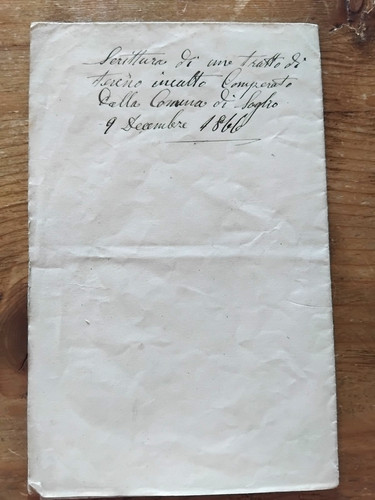 Scrittura di une tratto di
tereño incolto Comperato
Dalla Comuna di Soglio
9 Decembre 1866